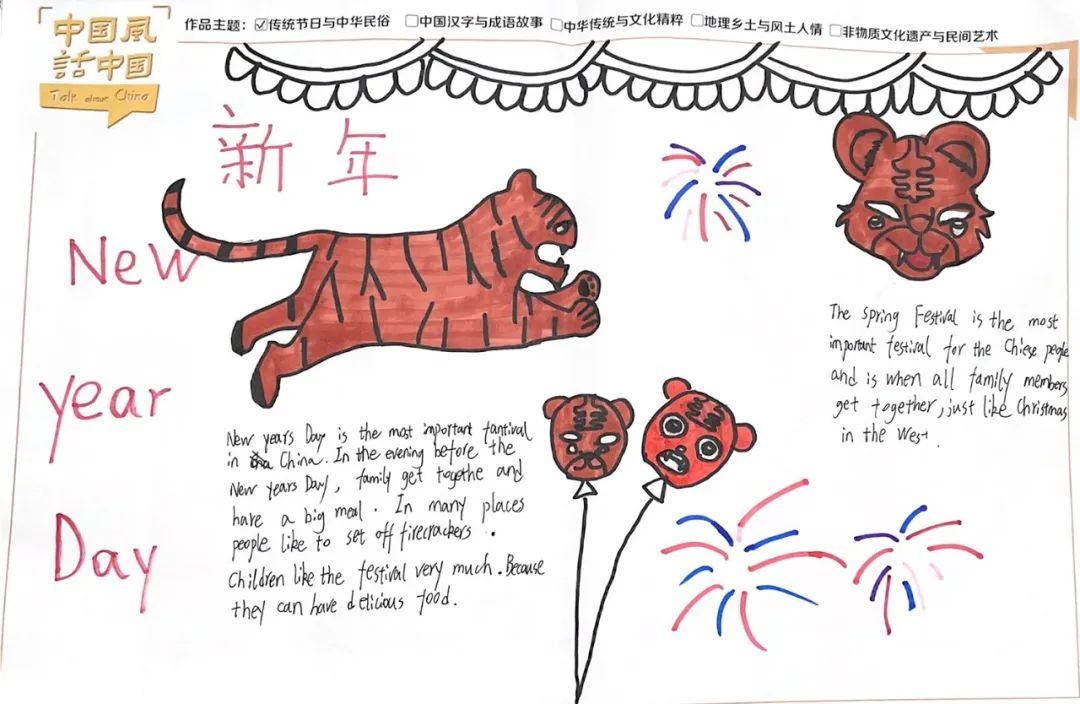 中国風
話中国
Talk about China
作品主题：☑传统节日与中华民俗 □中国汉字与成语故事 □中华传统与文化精粹 □地理乡土与风土人情 □非物质文化遗产与民间艺术
新年
New
year
Day
New years Day is the most important fantival
in China. In the evening before the
New years Day, family get togythe and
have a big meal. In many places
people like to set off firecrackers.
Children like the festival very much. Because
they can have delicious food.
The spring Festival is the most
important festival for the Chiese people
and is when all family members
get together, just like Christmas
in the West.